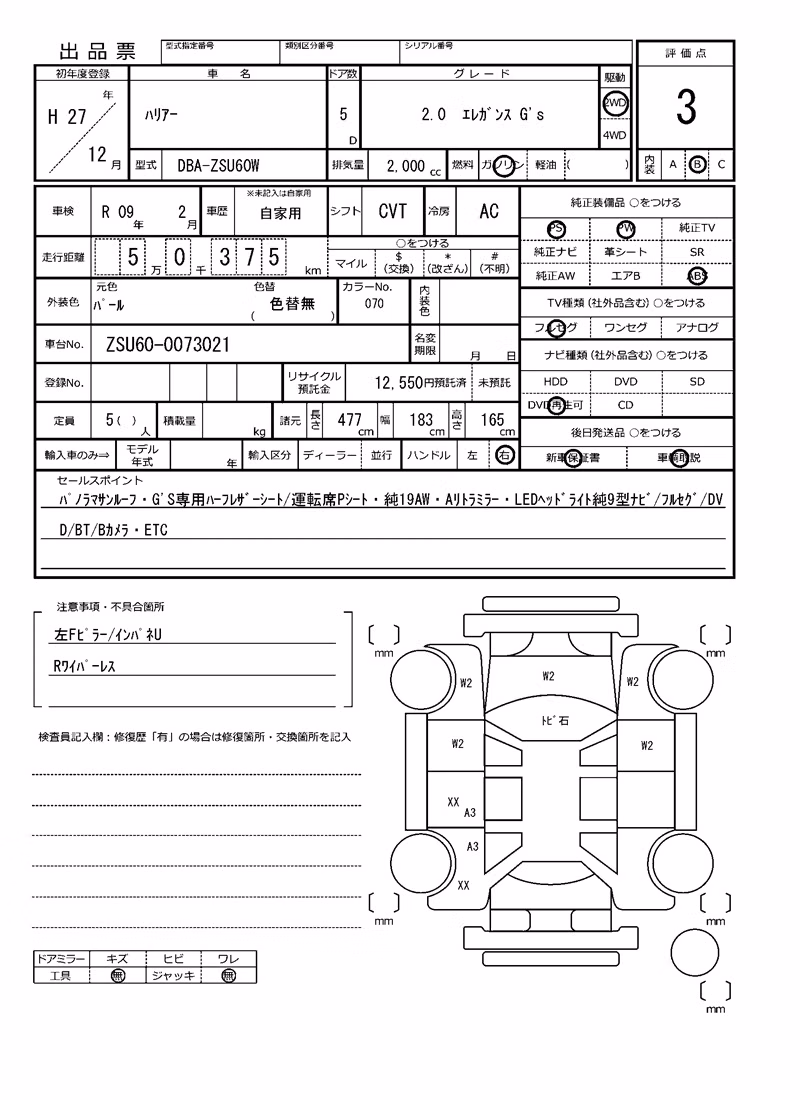 出品票 型式指定番号 類別区分番号 シリアル番号 評価点
初年度登録 車名 ドア数 グレード 駆動
H 27 年 12 月 ハリアー 5 D 2.0 エレガンス G's 2WD 4WD 3
型式 DBA-ZSU60W 排気量 2,000 cc 燃料 ガソリン 軽油 ( ) 内装 A B C
車検 R 09 年 2 月 車歴 ※未記入は自家用 自家用 シフト CVT 冷房 AC 純正装備品 ○をつける
PS PW 純正TV
走行距離 5 万 0 千 3 7 5 km ○をつける マイル $ (交換) * (改ざん) # (不明) 純正ナビ 革シート SR
純正AW エアB ABS
外装色 元色 パール 色替 ( 色替無 ) カラーNo. 070 内装色 TV種類(社外品含む)○をつける
フルセグ ワンセグ アナログ
車台No. ZSU60-0073021 名変期限 月 日 ナビ種類(社外品含む)○をつける
登録No. リサイクル預託金 12,550円預託済 未預託 HDD DVD SD
DVD再生可 CD
定員 5 ( ) 人 積載量 kg 諸元 長さ 477 cm 幅 183 cm 高さ 165 cm 後日発送品 ○をつける
輸入車のみ⇒ モデル年式 年 輸入区分 ディーラー 並行 ハンドル 左 右 新車保証書 車輌取説
セールスポイント
パノラマサンルーフ・G'S専用ハーフレザーシート/運転席Pシート・純19AW・Aリトラミラー・LEDヘッドライト純9型ナビ/フルセグ/DV
D/BT/Bカメラ・ETC
注意事項・不具合箇所
左Fピラー/インパネU
Rワイパーレス
検査員記入欄：修復歴「有」の場合は修復箇所・交換箇所を記入
mm mm
W2 W2 W2
トビ石
W2 W2
XX
A3
A3
XX
mm mm
ドアミラー キズ ヒビ ワレ
工具 無 ジャッキ 無
mm